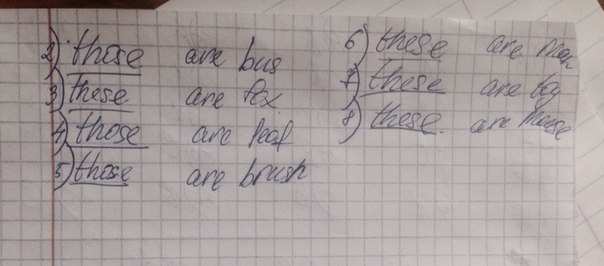 2) those are bus
3) These are fox
4) those are leaf
5) those are brush
6) these are man
7) these are toy
8) these. are mouse